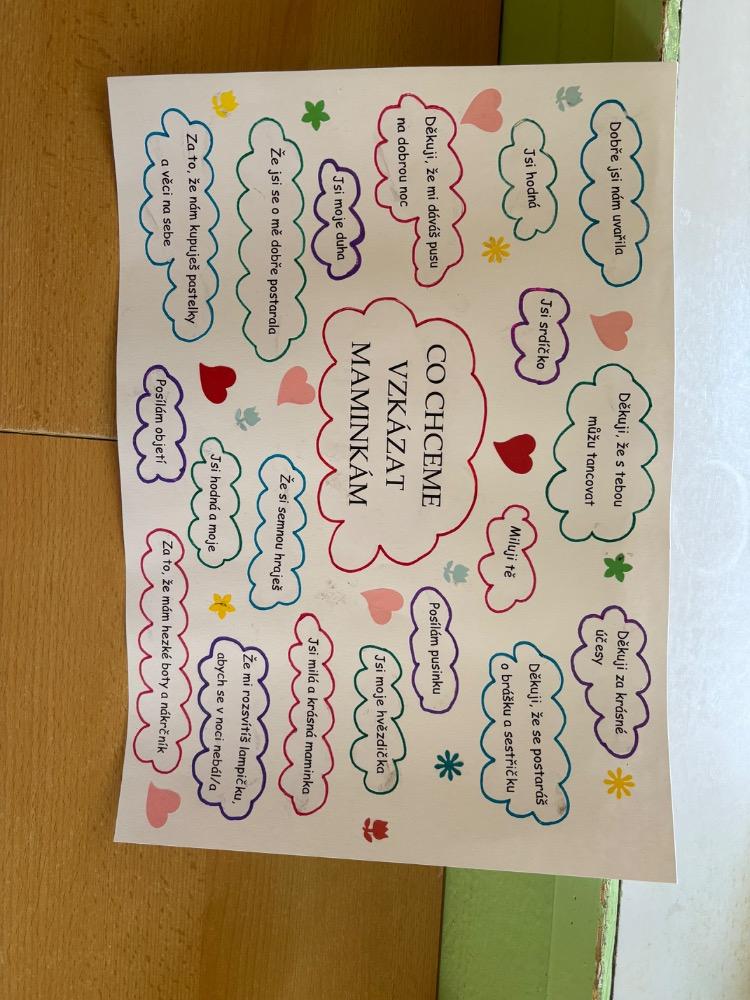 Dobře jsi nám uvařila
Děkuji, že s tebou
můžu tancovat
Děkuji za krásné
účesy
Jsi hodná
Jsi srdíčko
Miluji tě
Děkuji, že se postaráš
o brášku a sestřičku
Děkuji, že mi dáváš pusu
na dobrou noc
CO CHCEME
VZKÁZAT
MAMINKÁM
Posílám pusinku
Jsi moje duha
Jsi moje hvězdička
Že jsi se o mě dobře postarala
Že si semnou hraješ
Jsi milá a krásná maminka
Za to, že nám kupuješ pastelky
a věci na sebe
Jsi hodná a moje
Že mi rozsvítíš lampičku,
abych se v noci nebál/a
Posílám objetí
Za to, že mám hezké boty a nákrčník